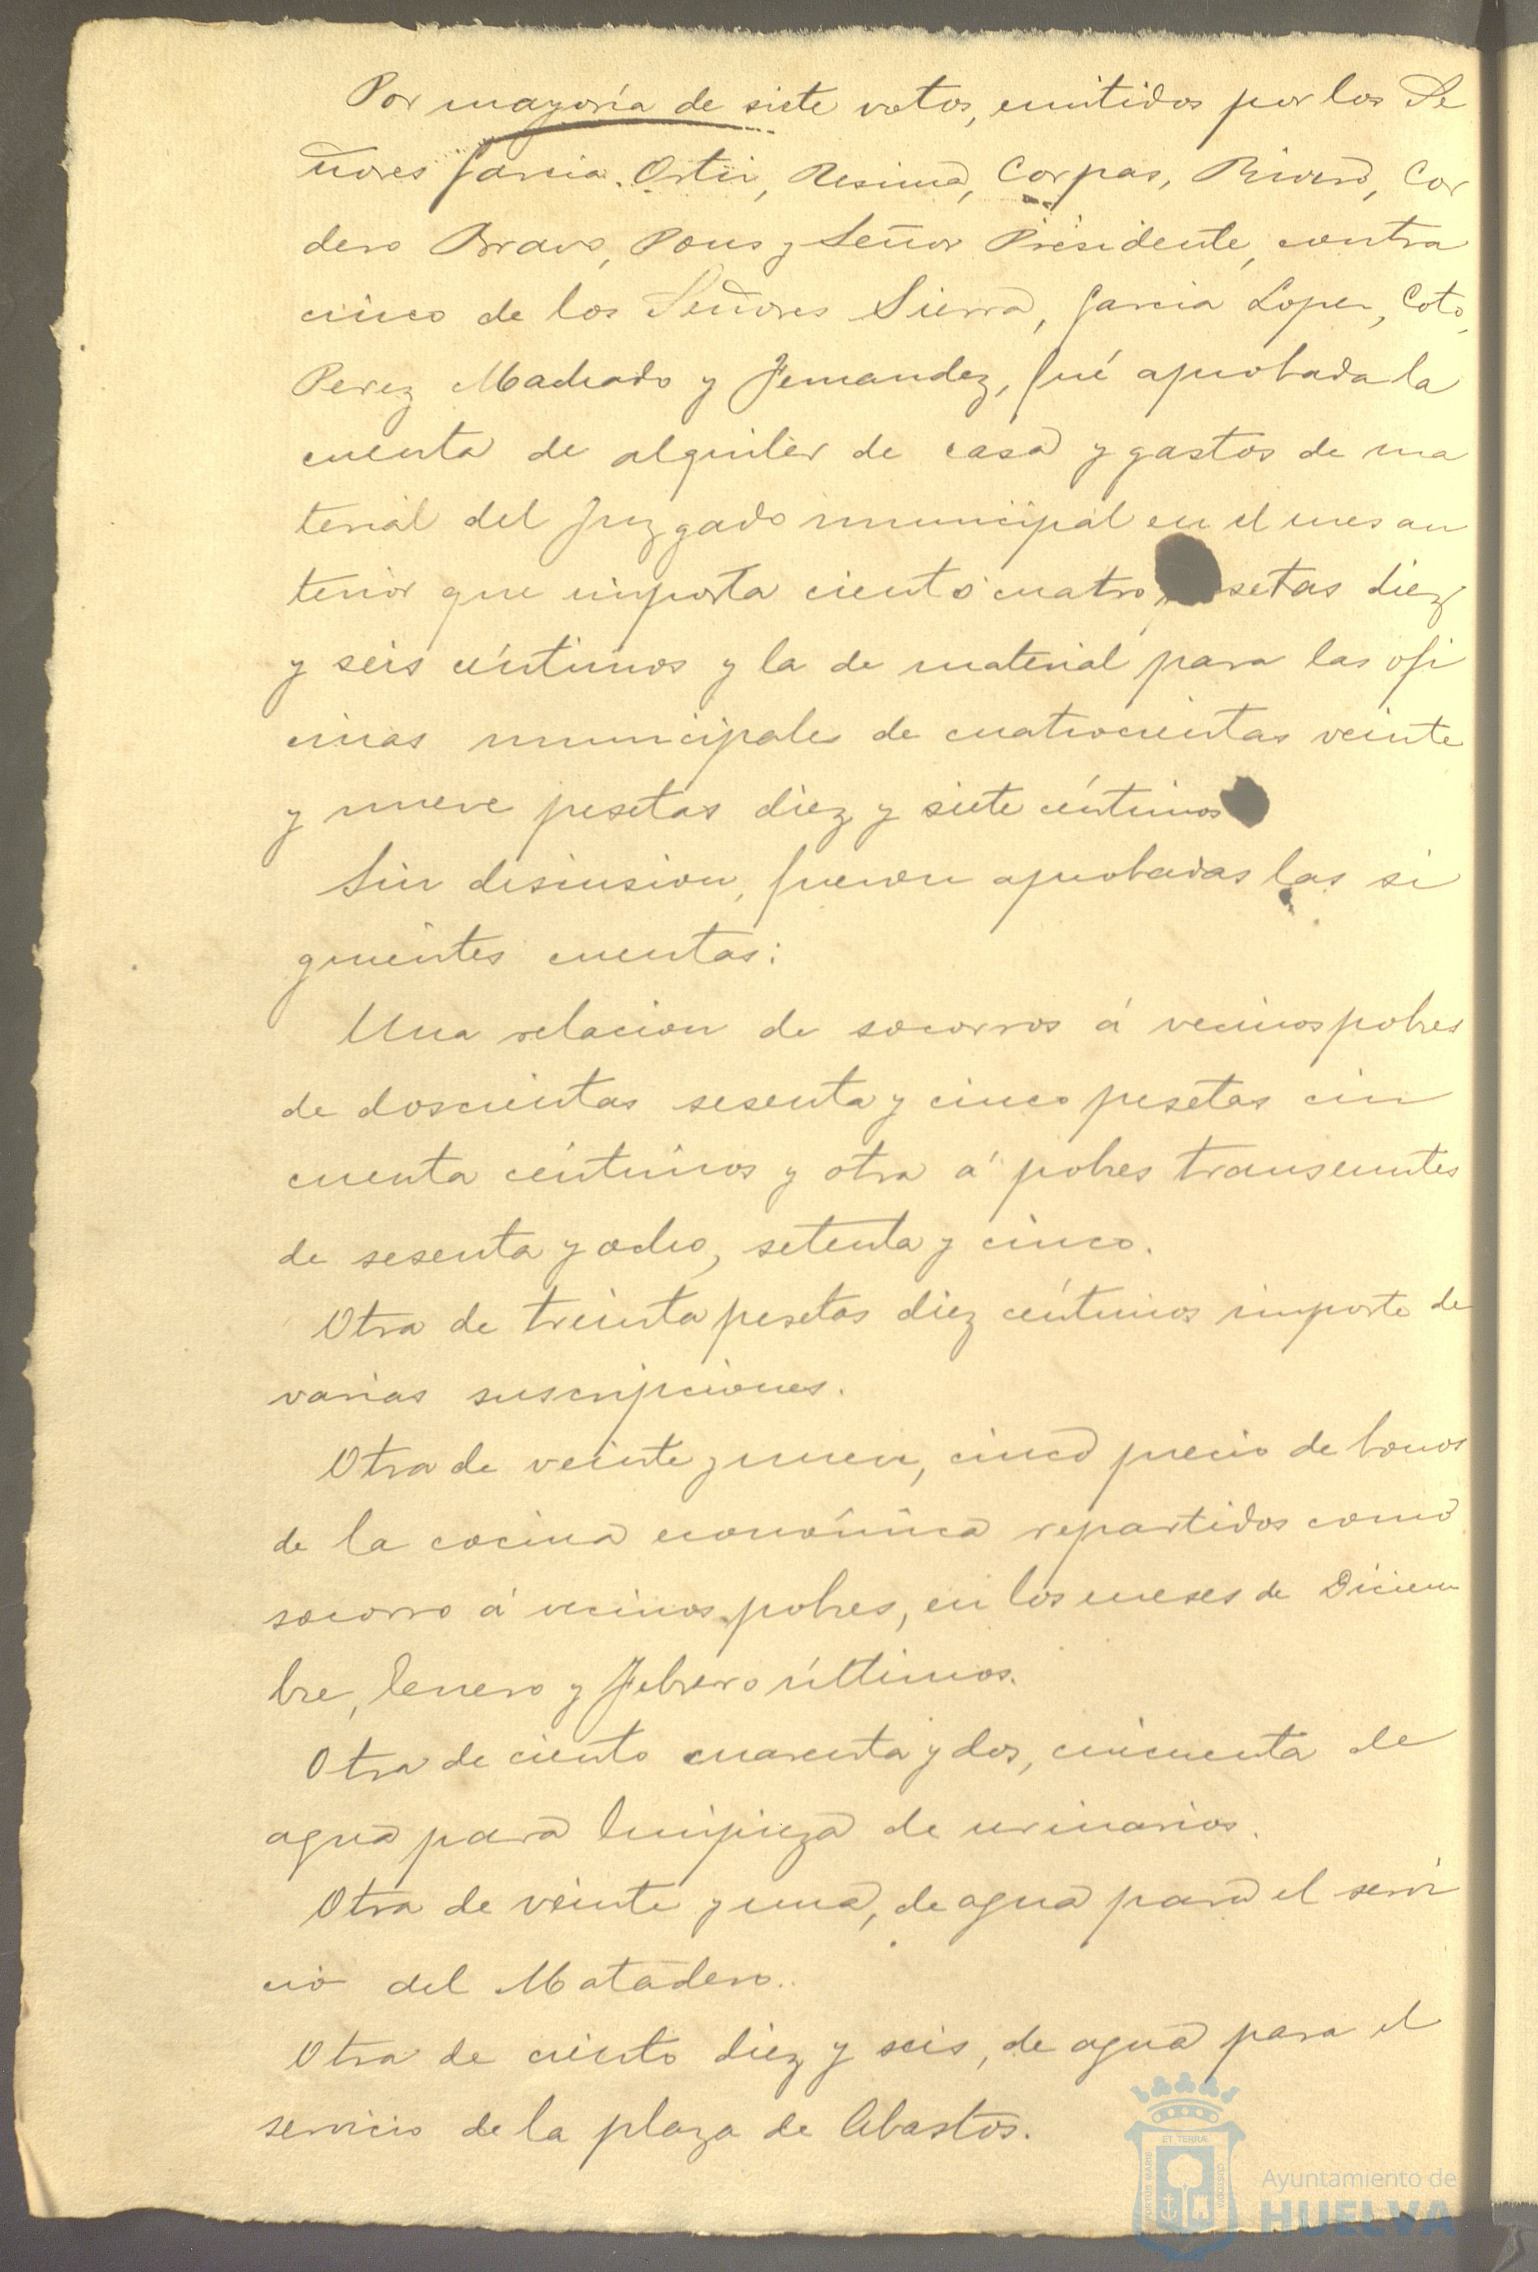 Por mayoría de siete votos, emitidos por los Se
ñores Garcia Ortiz, Resina, Corpas, Rivero, Cor
dero Bravo, Pons y Señor Presidente, contra
cinco de los Señores Sierra, Garcia Lopez, Coto,
Perez Machado y Fernandez, fué aprobada la
cuenta de alquiler de casa y gastos de ma
terial del Juzgado municipal en el mes an
terior que importa ciento cuatro setas diez
y seis céntimos y la de material para las ofi
cinas municipales de cuatrocientas veinte
y nueve pesetas diez y siete céntimos
Sin discusion, fueron aprobadas las si
guientes cuentas:
Una relacion de socorros á vecinos pobres
de doscientas sesenta y cinco pesetas cin
cuenta céntimos y otra á pobres transeuntes
de sesenta y ocho, setenta y cinco.
Otra de treinta pesetas diez céntimos importe de
varias suscripciones.
Otra de veinte y nueve, cinco precio de bonos
de la cocina económica repartidos como
socorro á vecinos pobres, en los meses de Diciem
bre, Enero y Febrero últimos.
Otra de ciento cuarenta y dos, cincuenta de
agua para limpieza de urinarios.
Otra de veinte y una, de agua para el servi
cio del Matadero.
Otra de ciento diez y seis, de agua para el
servicio de la plaza de Abastos.
PORTUS MARIS
ET TERRÆ
CUSTODIA
Ayuntamiento de
HUELVA